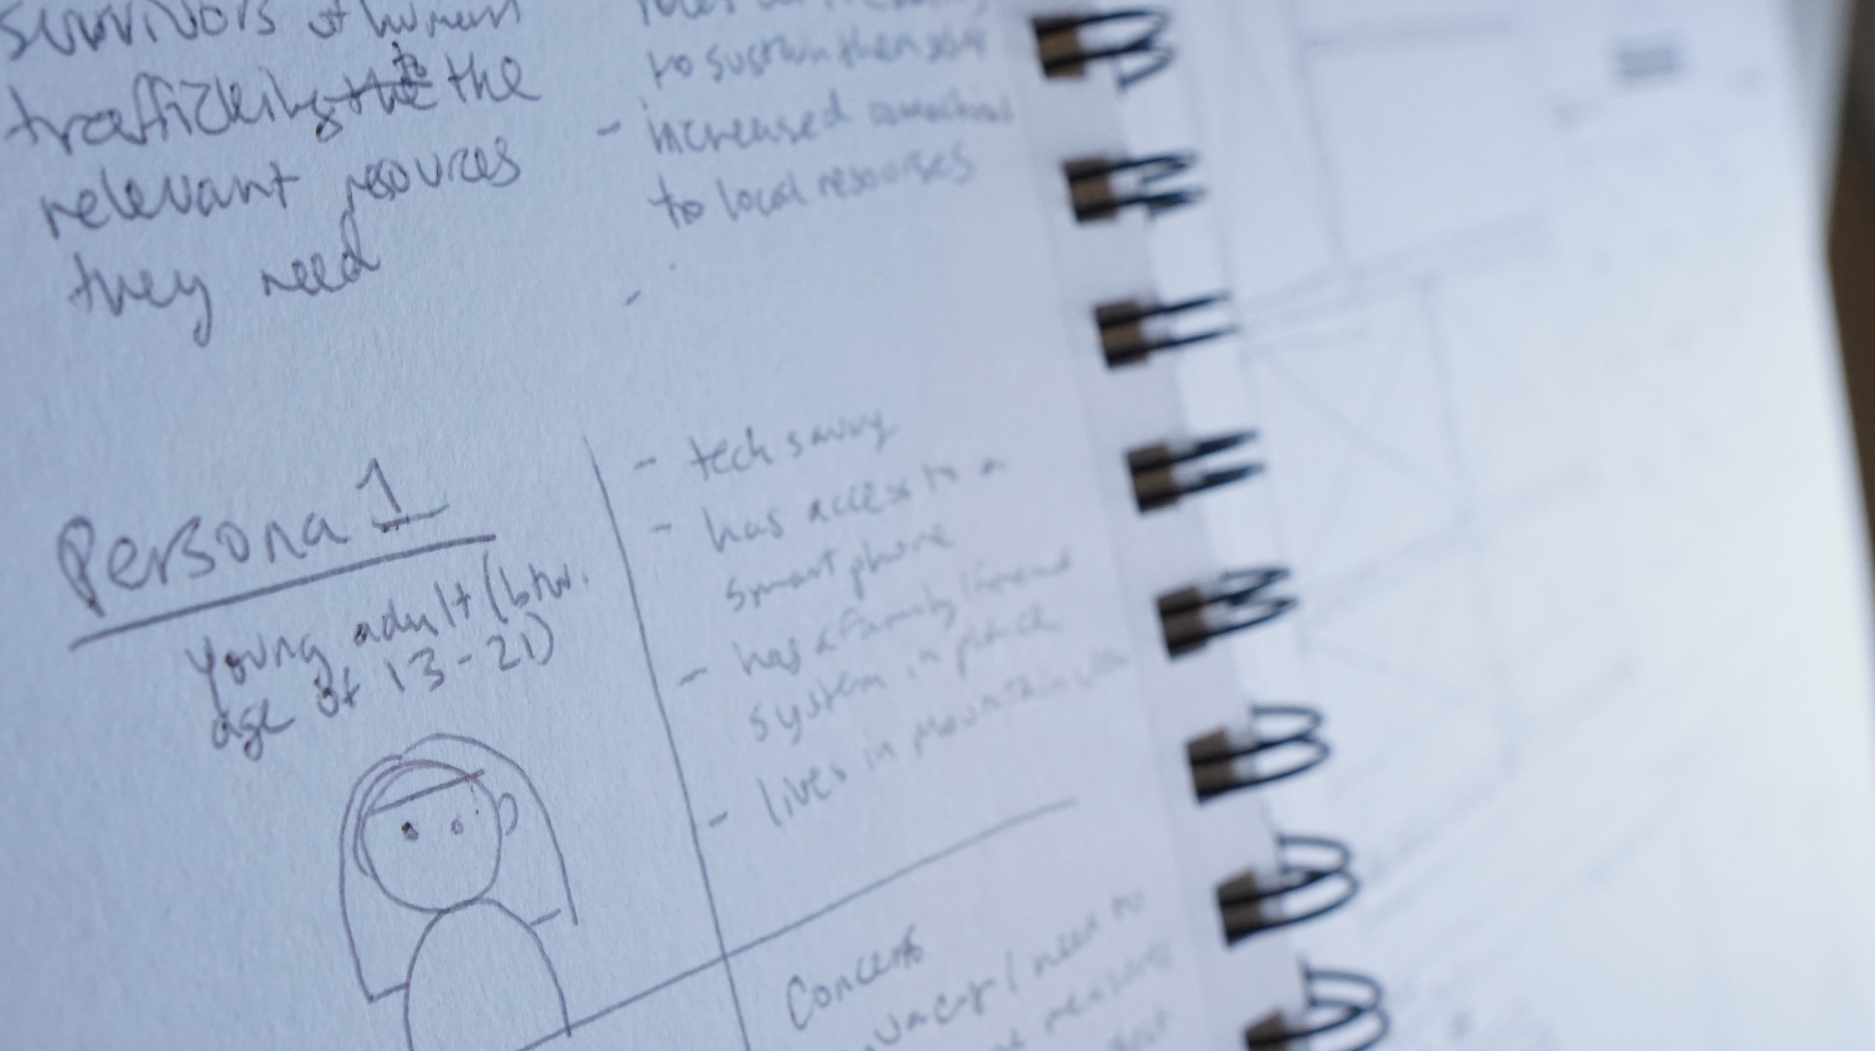 survivors of human
trafficking the to the
relevant resources
they need
to sustain
- increased
to local resources
-
Persona 1
young adult (btw.
age of 13-21)
- tech savvy
- has access to a
smart phone
- has a family/friend
system in place
- lives in Mountain
Concerns
need to